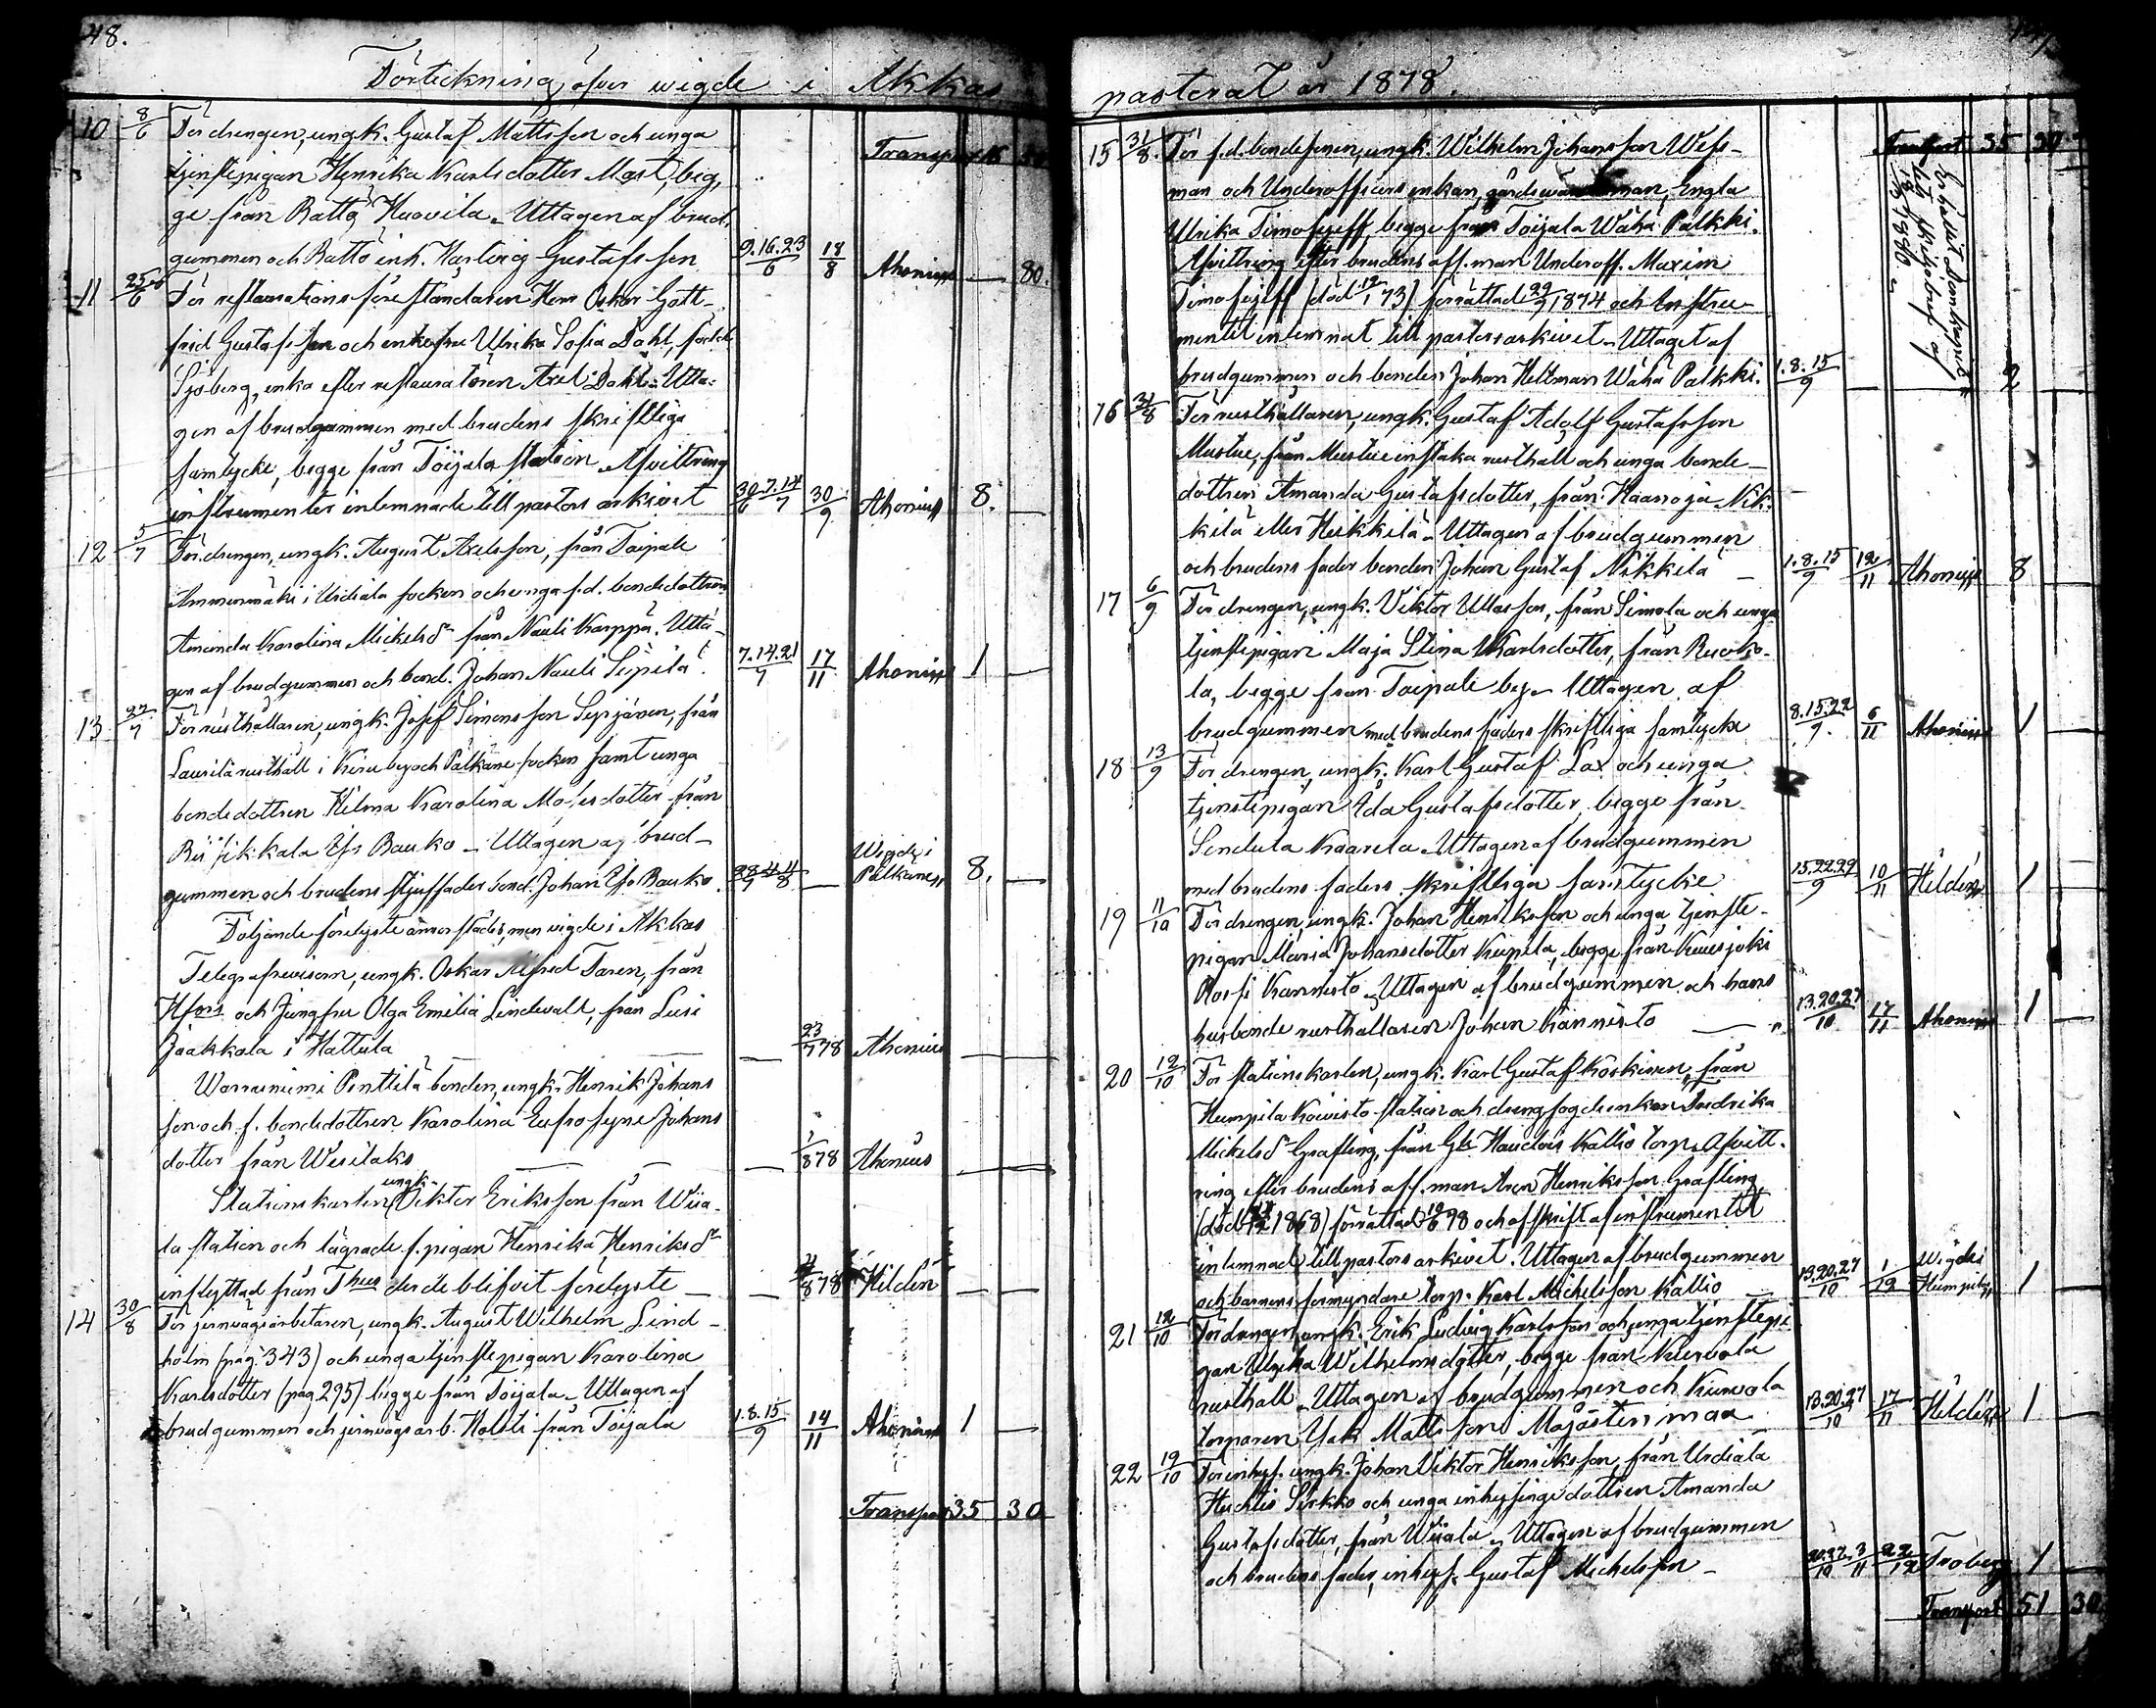 48.
Förteckning öfver wigde i Akkas
10 8/6 För drengen, ungk. Gustaf Mattsson och unga
Transport
tjenstepigan Henrika Karlsdotter Mast, beg-
ge från Rattö Huovila. Uttagen af brud-
gummen och Rattö inh. Hartvig Gustafsson 9.16.23/6 18/8 Ahonius — 80.
11 25/6 För restaurationsföreståndaren Herr Oskar Gott-
frid Gustafsson och enkefru Ulrika Sofia Dahl, född
Sjöberg, enka efter restauratören Axel Dahl. Utta-
gen af brudgummen med brudens skriftliga
samtycke, begge från Toijala station. Afvittrings
instrumenter inlemnade till pastors arkivet 30/6 7.14/7 30/9 Ahonius 8. —
12 5/7 För drengen, ungk. August Axelsson, från Taipale
i Urdiala socken och unga f.d. bondedottren
Amanda Karolina Mickelsdr från Nauli Karppa. Utta-
gen af brudgummen och bond. Johan Nauli Sipilä. 7.14.21/7 17/11 Ahonius 1 —
13 27/7 För rusthållaren, ungk. Josef Simonsson Seppänen, från
Laurilä rusthåll i by och Pälkäne socken samt unga
bondedottren Hilma Karolina Mosesdotter från
Riisikkala Rauko. Uttagen af brud-
gummen och brudens stjuffader bond. Johan Rauko. 28/7 4.11/8 — Wigde i Pälkäne 8. —
Följande förelyste annorstädes, men vigde i Akkas
Telegrafrevisorn, ungk. Oskar Alfred Taren, från
Hfors och Jungfru Olga Emilia Lindevall, från Lusi
Jaakkola i Hattula — 23/7 78 Ahonius — —
Warrunimi Penttilä bonden, ungk. Henrik Johans
son och f. bondedottren Karolina Eufrosyne Johans
dotter från Wesilaks — 1/8 78 Ahonius — —
Stationskarlen, ungk. Viktor Eriksson från Wiia-
la station och lägrade f. pigan Henrika Henriksdr
inflyttad från Thus der de blifvit förelyste — /8 78 Hildén — —
14 30/8 För jernvägsarbetaren, ungk. August Wilhelm Lind-
holm (pag. 343) och unga tjenstepigan Karolina
Karlsdotter (pag 295) begge från Toijala. Uttagen af
brudgummen och jernvägsarb. Holsti från Toijala 1.8.15/9 14/11 Ahonius 1 —
Transport 35 30
pastorat år 1878.
Transport 35 30
15 31/8 För f.d. bondesonen, ungk. Wilhelm Johansson Wess-
man och Underofficers enkan, Engla
Ulrika Timofejeff, begge från Toijala Wähä Palkki.
Afvittring efter brudens afl. man Underoff. Maxim
Timofejeff (död 19/1 73) förrättad 29/9 1874 och instru-
mentet inlemnat till pastorsarkivet. Uttaget af
brudgummen och bonden Johan Heltman Wähä Palkki. 1.8.15/9 — 2
Erhållit Domkapit-
lets skiljobref af
1880.
16 31/8 För rusthållaren, ungk. Gustaf Adolf Gustafsson
Mustue, från Mustue rusthåll och unga bonde-
dottren Amanda Gustafsdotter, från Haanoja Nik-
kilä eller Heikkilä. Uttagen af brudgummen
och brudens fader bonden Johan Gustaf Nikkilä — 1.8.15/9 12/11 Ahonius 8
17 6/9 För drengen, ungk. Viktor Ullasson, från Simola och unga
tjenstepigan Maja Stina Karlsdotter, från Ruoko-
la, begge från Taipale by. Uttagen af
brudgummen med brudens faders skriftliga samtycke 8.15.22/9 6/11 Ahonius 1 —
18 13/9 För drengen, ungk. Karl Gustaf Lax och unga
tjenstepigan Eda Gustafsdotter, begge från
Sendula Kaarela. Uttagen af brudgummen
med brudens faders skriftliga samtycke 15.22.29/9 10/11 Hildén 1 —
19 11/10 För drengen, ungk. Johan Henriksson och unga tjenste-
pigan Maria Johansdotter Kiipilä, begge från Kuusjoki
Kannisto. Uttagen af brudgummen och hans
husbonde rusthållaren Johan Kannisto — 13.20.27/10 17/11 Ahonius 1 —
20 12/10 För stationskarlen, ungk. Karl Gustaf Koskinen, från
Humpila Koivisto station och drengfogdeenkan Fredrika
Mickelsdr Grafling, från Kallio torp. Afvitt-
ring efter brudens afl. man Aron Henriksson Grafling
(död 1868) förrättad och afskrift af instrumentet
inlemnad till pastorsarkivet. Uttagen af brudgummen
och barnens förmyndare torp. Karl Michelsson Kallio — 13.20.27/10 1/12 Wigde i Humpila 1 —
21 12/10 För drengen, ungk. Erik Ludvig Karlsson och unga tjenstepi-
gan Ulrika Wilhelmsdotter, begge från Kurvola
rusthåll. Uttagen af brudgummen och Kurvola
torparen Isak Mattsson Majastenmaa 13.20.27/10 17/11 Hildén 1 —
22 19/10 För inhys. ungk. Johan Viktor Henriksson, från Urdiala
Huchtis Sirkko och unga inhysingedottren Amanda
Gustafsdotter, från Wiiala. Uttagen af brudgummen
och brudens fader, inhys. Gustaf Michelsson — 20.27/10 3/11 22/12 Froberg 1 —
Transport 51 30